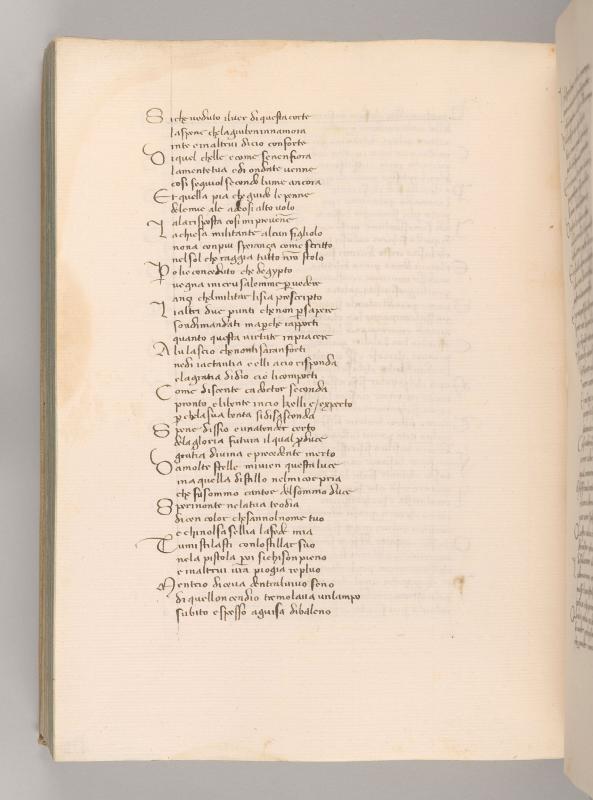 Si che ueduto iluer di questa corte
laspene che lagiuben innamora
inte e inaltrui dicio conforte
Di quel chelle e come sene infiora
lamente tua e di ondate uenne
cosi seguiol secondo lume ancora
Et quella pia che guido le penne
delemie ale acosi alto uolo
ala risposta cosi mi preuēne
La chiesa militante alcun figliolo
non a con piu speranza come scritto
nel sol che raggia tutto nr̄o stolo
Po lie conceduto che degypto
uegna inierusalemme p uedere
anzi chelmilitar lisia prescripto
Li altri due punti che non p sapere
son dimandati ma pche rapporti
quanto questa uirtute in piacere
A lui lascio che nonli saran forti
ne di iactantia e elli acio risponda
e la gratia didio cio li comporti
Come discente ca doctor seconda
pronto e libente incio kelli e experto
p che la sua bonta si disasconda
Spene dissio e un atender certo
de la gloria futura il qual pduce
gratia diuina e precedente merto
Da molte stelle mi uien questa luce
ma quella distillo nelmi cor pria
che fu sommo cantor del sommo duce
Sperino nte nela tua teodia
dicen color che sannol nome tuo
e chi nol sa selli a la fede mia
Tu mi stillasti con lo stillar suo
ne la pistola poi si chi son pieno
e inaltrui ur̄a piogia repluo
Mentrio diceua dentral uiuo seno
di quello ncendio tremolaua un lampo
subito e spesso a guisa di baleno